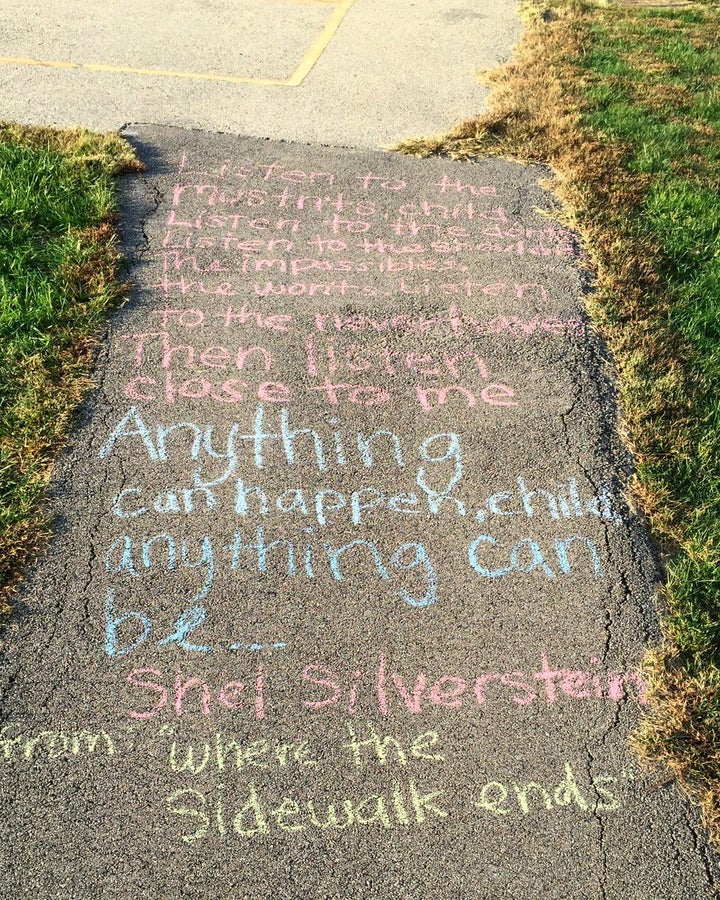 Listen to the
mustnts, child
Listen to the donts
Listen to the shouldnts
The impossibles,
the wonts Listen
to the never haves
Then listen
close to me
Anything
can happen, child
anything can
be...
Shel Silverstein
from: "where the
Sidewalk ends"